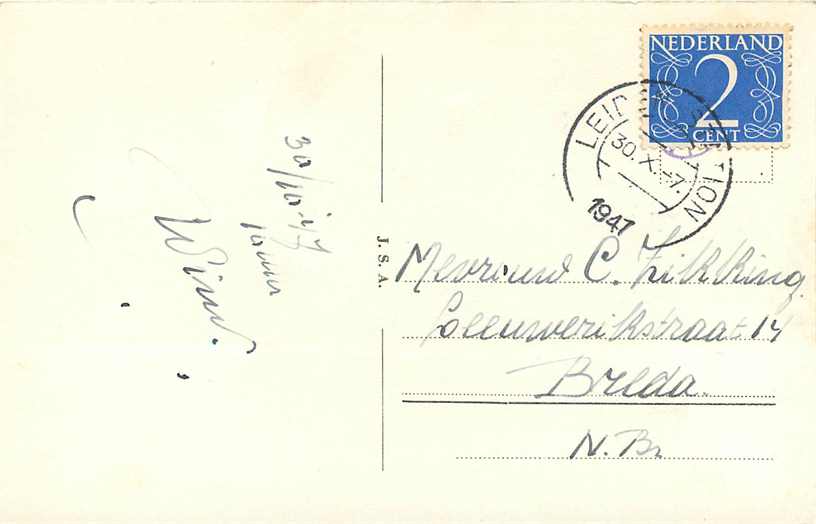 30/10-47
Wim.
J.S.A.
NEDERLAND
2
CENT
LEIDEN STATION
30.X.-7.
1947
Mevrouw C.
Leeuwerikstraat 14
Breda.
N.Br.